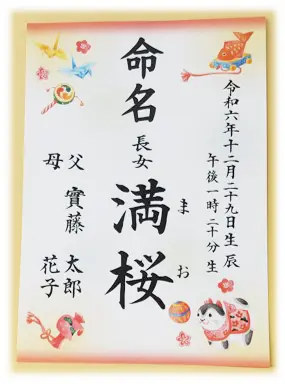 令和六年十二月二十九日生 辰
午後一時二十分 生
命名 長女 満桜
まお
父 實藤 太郎
母 花子